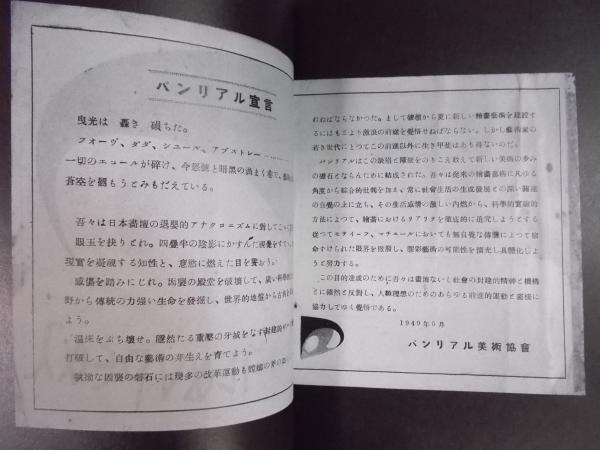 パンリアル宣言
曳光は　轟き　磒ちた。
フォーヴ、ダダ、シュール、アブストレー…………
一切のエコールが砕け、今怒號と暗黒の渦まく巷で、
蒼空を覩もうとみもだえている。
吾々は日本畵壇の退嬰的アナクロニズムに對してこゝに
眼玉を抉りとれ。四疊半の陰影にかすんだ視覺をすて
現實を凝視する知性と、意慾に燃えた目を養おう。
感傷を踏みにじれ。因襲の殿堂を破壊して、廣い科學的
野から傳統の力强い生命を發掘し、世界的地盤から
よう。
温床をぶち壊せ。厖然たる重壓の牙城をなす封建的
打破して、自由な藝術の芽生えを育てよう。
執拗な因襲の磐石には幾多の改革運動も蟷螂の斧の
むねばならなかつた。まして礎檀から更に新しい繪畫藝術を建設す
るにはもとより激浪の前途を覺悟せねばならない。しかし藝術家の
若き世代にとつてこの前進以外に生き甲斐はあり得ないのだ。
パンリアルはこの陜隘と障壁をのりこえ敢えて新しい美術の歩み
の礎石とならんために結成された。吾々は從來の繪畵藝術に凡ゆる
角度から綜合的批判を加え、常に社會生活の生成發展との深い關連
の自覺の上に立ち、その生活感情の激しい内燃から、科學的實験的
方法によつて、繪畵におけるリアリテを徹底的に追究しようとする
從つてモティーフ、マチエールにおいても無自覺な傳襲によつて宿
命ずけられた限界を激發し、膠彩藝術の可能性を擴充し具體化しよ
うと努力する。
この目的達成のために吾々は畵壇ないし社會の封建的精神と機構
とに確然と反對し、人類理想のためのあらゆる前進的運動と直接に
協力してゆく覺悟である。
1949年5月
パンリアル美術協會